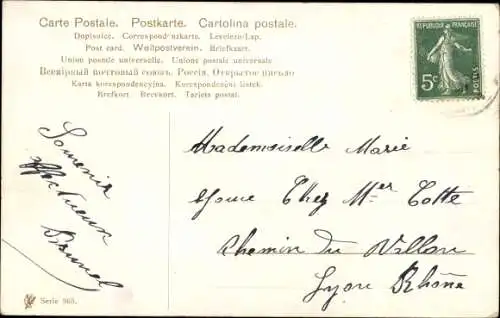 Carte Postale. Postkarte. Cartolina postale.
Dopisnice. Correspondenzkarte. Levelezo-Lap.
Post card. Weltpostverein. Briefkaart.
Union postale universelle. Unione postale universale
Всемірный почтовый союзъ. Россія. Открытое письмо
Karta korespondencyjna. Korespondenční lístek.
Brefkort. Brevkort. Tarjeta postal.
REPUBLIQUE FRANÇAISE
5c
POSTES
Souvenir
affectueux
Mademoiselle Marie
Chez Mer Cotte
Chemin du Villon
Lyon Rhône
Serie 963.